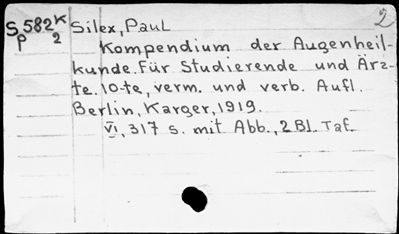 2
S 582 K Silex, Paul
p 2
Kompendium der Augenheil-
kunde. Für Studierende und Ärz-
te. 10-te, verm. und verb. Aufl.
Berlin, Karger, 1919.
VI, 317 s. mit Abb., 2 Bl. Taf.